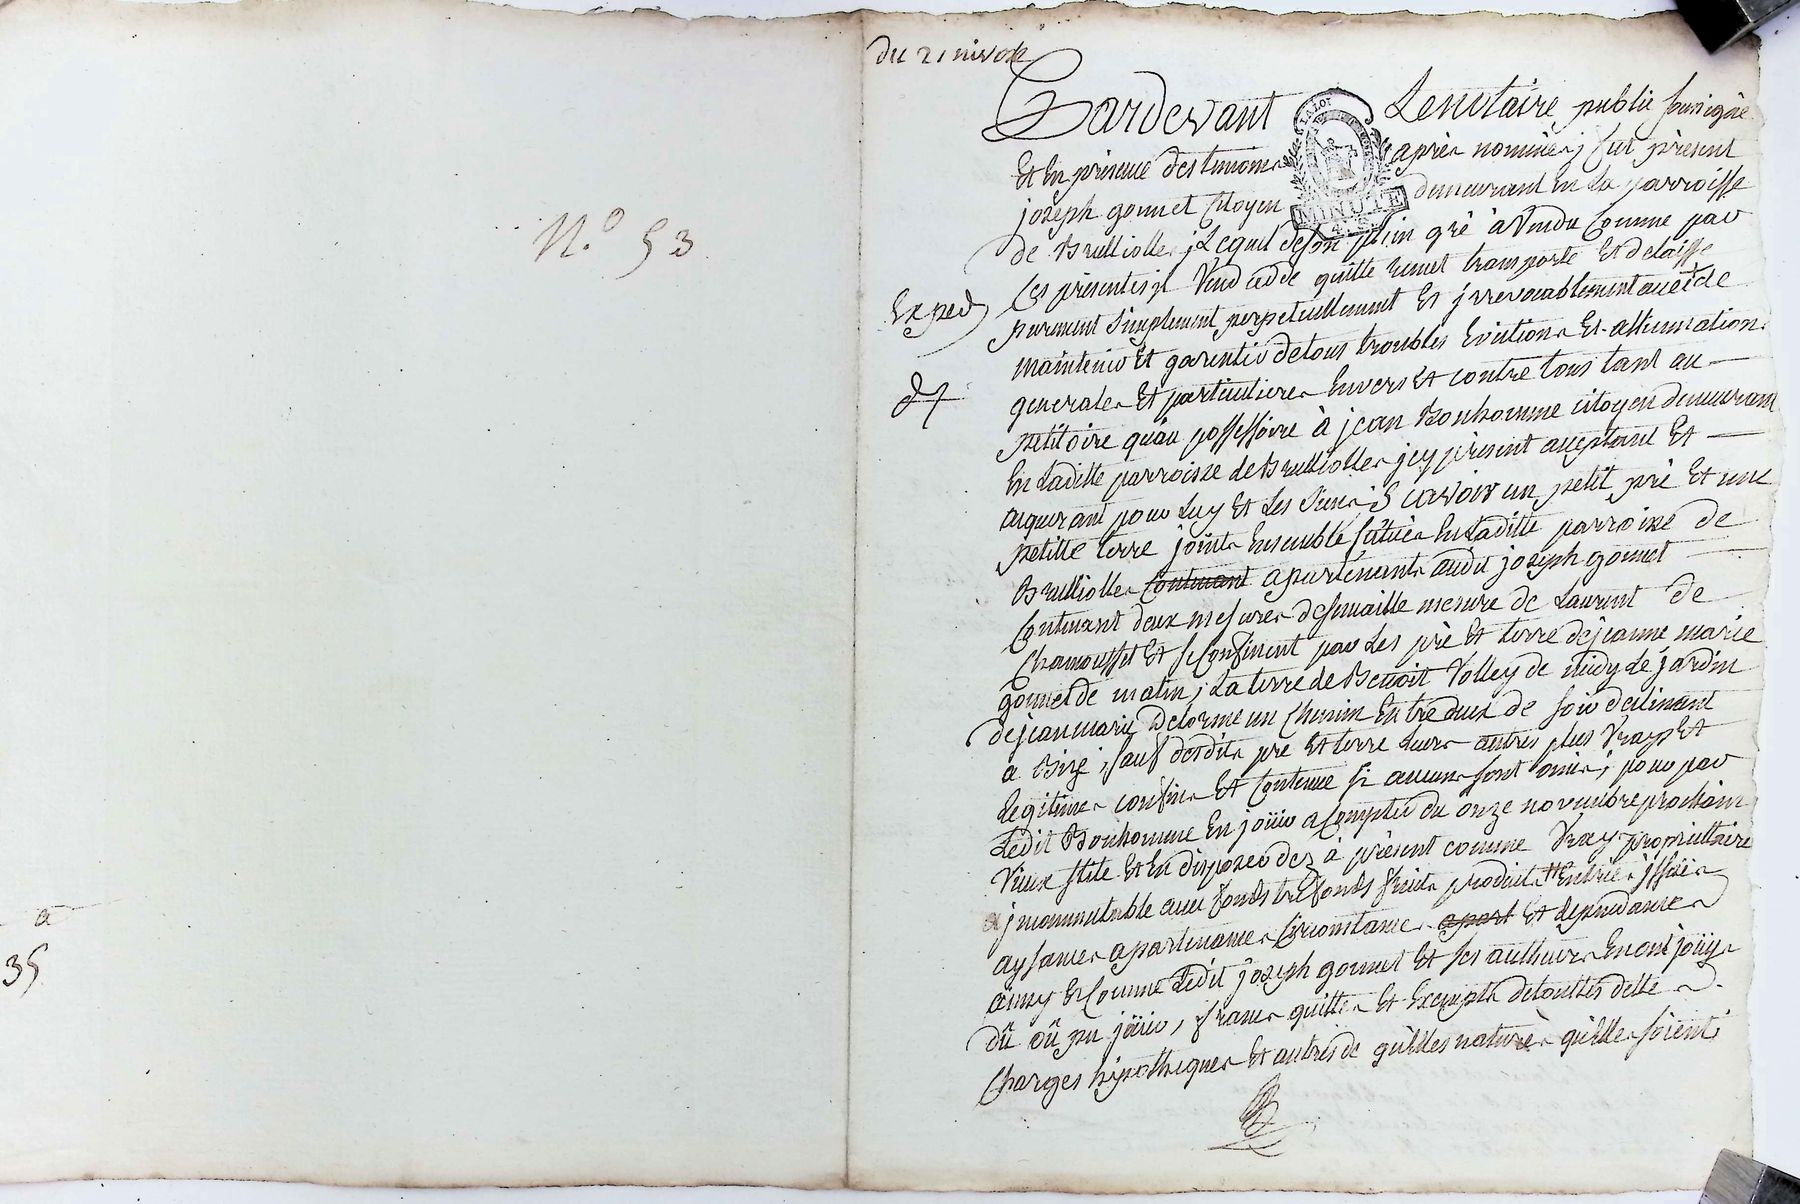 N.º 53
a
35
du 21 nivose
Pardevant Le notaire public soussigné
Et En présence des témoins après nommés ; fut présent
joseph gonnet Citoyen demeurant En La parroisse
de Brullioles ; Lequel de son plein gré à vendu Comme par
Ces présentes il vend cede quitte remet transporte Et delaisse
purement simplement perpetuellement Et jrrevocablement avec + de
Exped
maintenir Et garentir de tous troubles Evictions Et
generales Et particulieres Envers Et contre tous tant au
petitoire qu'au possessoire à jean Bonhomme citoyen demeurant
En Laditte parroisse de Brullioles jcy présent aceptant Et
aquerant pour Luy Et Les Siens ; Scavoir un petit pré Et une
petitte terre joints Ensemble situés En Laditte parroisse de
Brullioles Contenant apartenants audit joseph gonnet
Contenant deux mesures de semaille mesure de Laurent de
Chamousset Et se Confinent par Les pré Et terre de jeanne marie
gonnet de matin ; La terre de Benoit Volley de midy Le jardin
de jean marie Delorme un Chemin Entre deux de soir declinant
a Bize ; sauf desdits pré Et terre Leurs autres plus Vrays Et
Legitimes confins Et Contenue si aucuns sont omis ; pour par
Ledit Bonhomme En joüir a Compter du onze novembre prochain
Vieux stile Et En disposer dez à présent comme Vray propriettaire
jncommutable avec fonds trefonds fruits produits Entrées jssües
aysances apartenances Circonstances apart Et dependances
ainsy Et Comme Ledit joseph gonnet Et ses autheurs En ont joüy
dû oû pu joüir, francs quittes Et Exempts de touttes dette
Charges hypotheques Et autres de quelles natures qu'elles soient ;
LA LOI
MINUTE